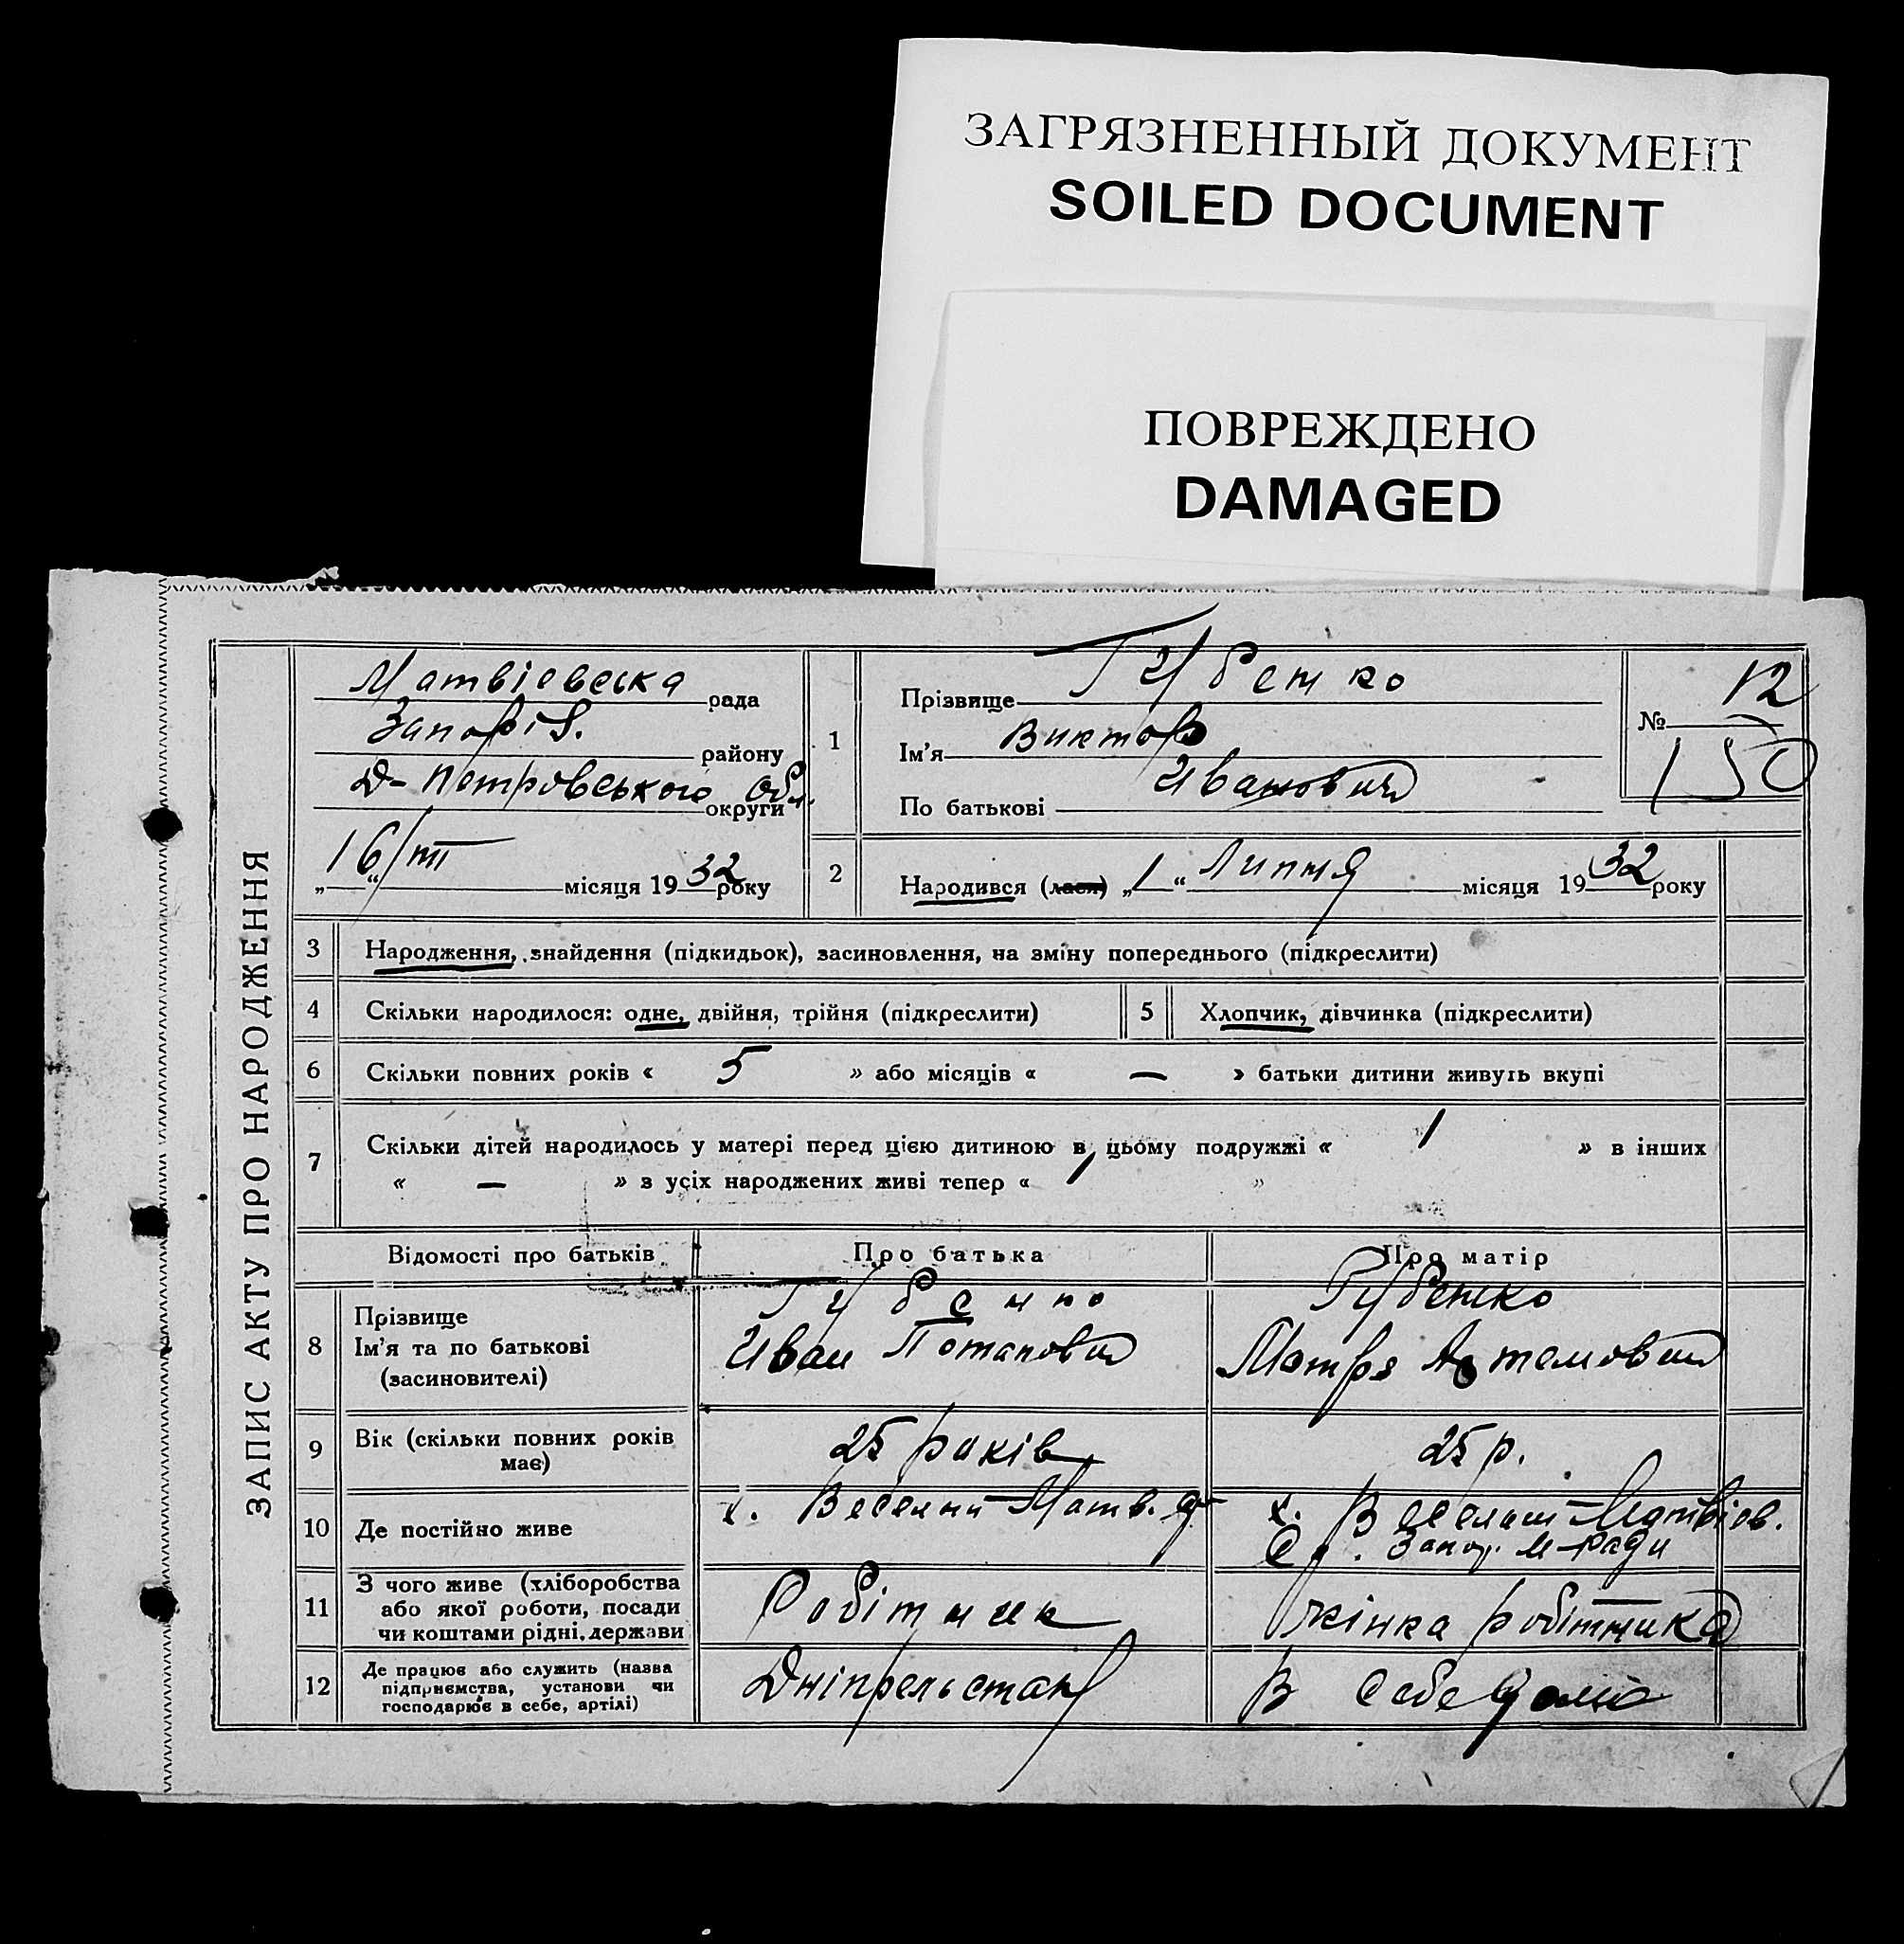 ЗАГРЯЗНЕННЫЙ ДОКУМЕНТ
SOILED DOCUMENT
ПОВРЕЖДЕНО
DAMAGED
ЗАПИС АКТУ ПРО НАРОДЖЕННЯ
Матвіевська рада
Запоріз. району
Д-Петровського Обл. округи
„16“/III місяця 1932 року
1 Прізвище Губенко
Ім'я Виктор
По батькові Иванович
№ 12
150
2 Народився (лася) „1“ Липня місяця 1932 року
3 Народження, знайдення (підкидьок), засиновлення, на зміну попереднього (підкреслити)
4 Скільки народилося: одне, двійня, трійня (підкреслити) 5 Хлопчик, дівчинка (підкреслити)
6 Скільки повних років « 5 » або місяців « — » батьки дитини живуть вкупі
7 Скільки дітей народилось у матері перед цією дитиною в цьому подружжі « 1 » в інших
« — » з усіх народжених живі тепер « 1 »
Відомості про батьків Про батька Про матір
8 Прізвище
Ім'я та по батькові
(засиновителі)
Губенко
Иван Потапович
Губенко
Мотря Артемовна
9 Вік (скільки повних років
має)
25 років
25 р.
10 Де постійно живе
х. Веселий Матв.
х. Веселий Матвіов.
Запор. М-Ради
11 З чого живе (хліборобства
або якої роботи, посади
чи коштами рідні, держави
Робітник
жінка робітника
12 Де працює або служить (назва
підприємства, установи чи
господарює в себе, артілі)
Дніпрельстан
В себе дома